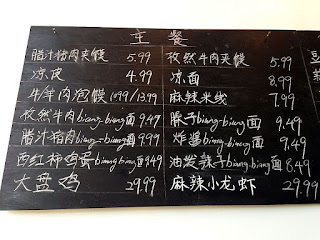 主餐
腊汁猪肉夹馍 5.99
凉皮 4.99
牛/羊肉泡馍 10.99/13.99
孜然牛肉biang-biang面 9.49
腊汁猪肉biang-biang面 9.99
西红柿鸡蛋biang-biang面 8.49
大盘鸡 29.99
孜然牛肉夹馍 5.99
凉面 8.99
麻辣米线 7.99
臊子biang-biang面 9.49
炸酱biang-biang面 9.49
油泼辣子biang-biang面 8.49
麻辣小龙虾 29.99